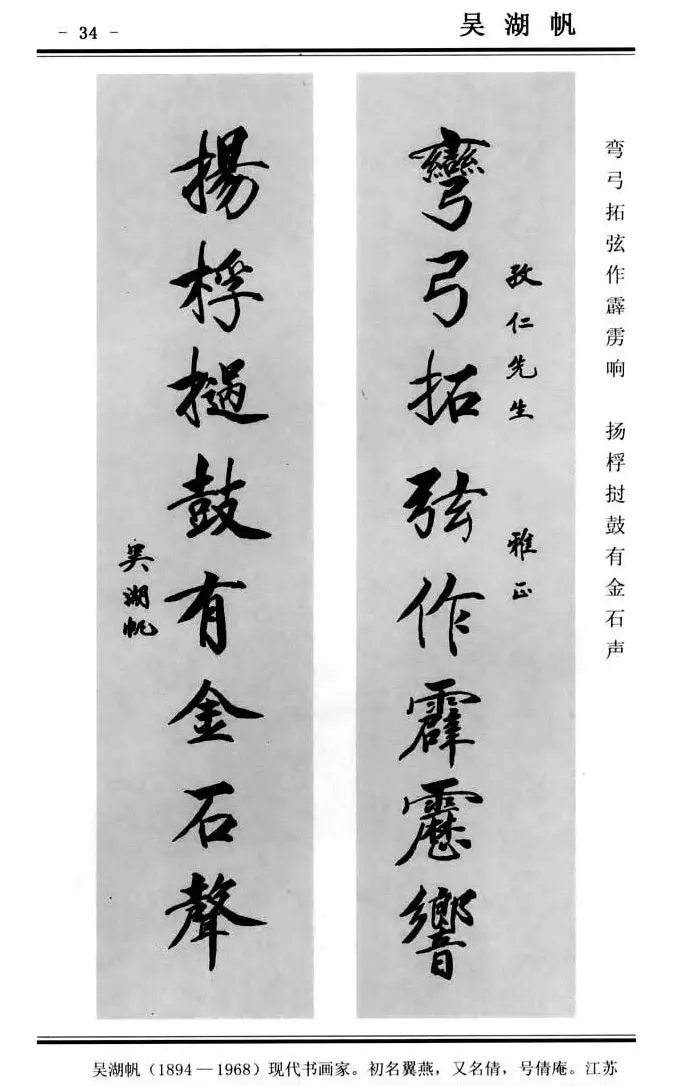 - 34 -
吴湖帆
弯弓拓弦作霹雳响 扬桴挝鼓有金石声
孜仁先生 雅正
彎弓拓弦作霹靂響
揚桴撾鼓有金石聲
吴湖帆
吴湖帆（1894—1968）现代书画家。初名翼燕，又名倩，号倩庵。江苏